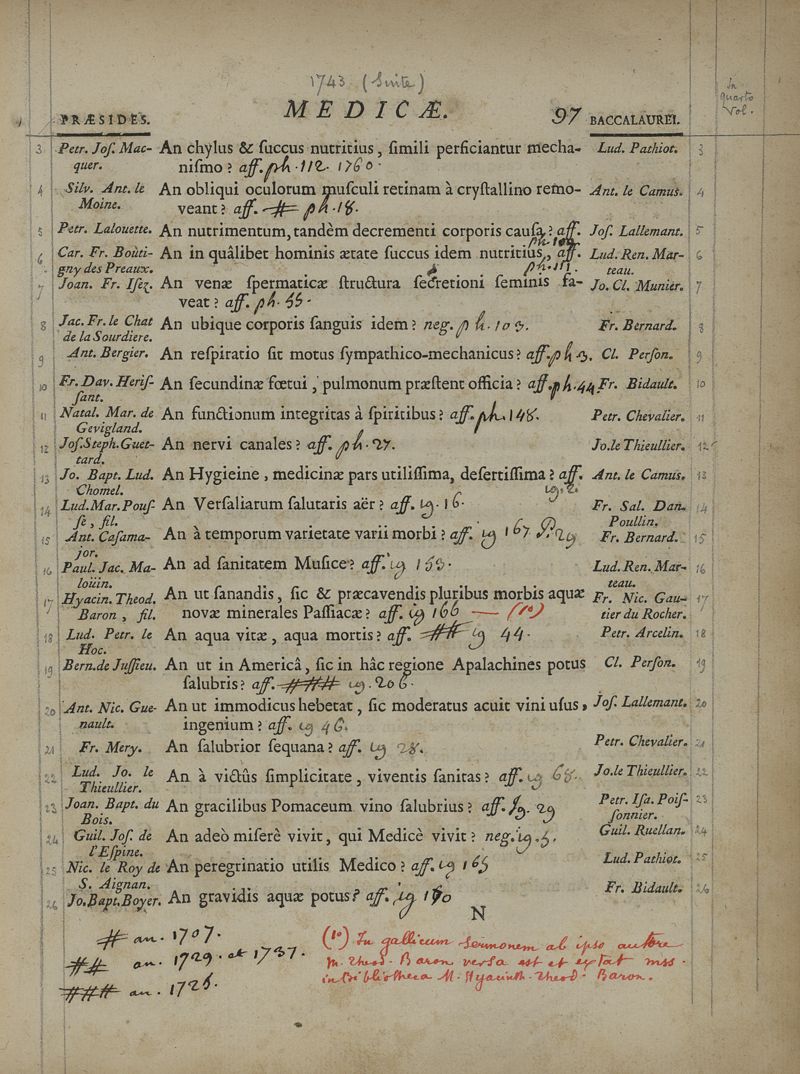 1743 (Suite)
In
quarto
Vol.
PRÆSIDES. MEDICÆ. 97 BACCALAUREI.
3 Petr. Jos. Mac- An chylus & ſuccus nutritius, ſimili perficiantur mecha- Lud. Pathiot. 3
quer. niſmo? aff. ph. 112. 1760.
4 Silv. Ant. le An obliqui oculorum muſculi retinam à cryſtallino remo- Ant. le Camus. 4
Moine. veant? aff. # ph. 18.
5 Petr. Lalouette. An nutrimentum, tandèm decrementi corporis cauſa? aff. Joſ. Lallemant. 5
6 Car. Fr. Boüti- An in quâlibet hominis ætate ſuccus idem nutritius, aff. Lud. Ren. Mar- 6
gny des Preaux. ph. 111. teau.
7 Joan. Fr. Iſez. An venæ ſpermaticæ ſtructura ſecretioni ſeminis fa- Jo. Cl. Munier. 7
veat? aff. ph.
8 Jac. Fr. le Chat An ubique corporis ſanguis idem? neg. ph. 109. Fr. Bernard. 8
de la Sourdiere.
9 Ant. Bergier. An reſpiratio ſit motus ſympathico-mechanicus? aff. ph Cl. Perſon. 9
10 Fr. Dav. Heriſ- An ſecundinæ fœtui, pulmonum præſtent officia? aff. ph. 44 Fr. Bidault. 10
ſant.
11 Natal. Mar. de An functionum integritas à ſpiritibus? aff. ph. 148. Petr. Chevalier. 11
Gevigland.
12 Joſ. Steph. Guet- An nervi canales? aff. ph. 27. Jo. le Thieullier. 12
tard.
13 Jo. Bapt. Lud. An Hygieine, medicinæ pars utiliſſima, deſertiſſima? aff. Ant. le Camus. 13
Chomel. hyg. 2.
14 Lud. Mar. Pouſ- An Verſaliarum ſalutaris aër? aff. hyg. 16. Fr. Sal. Dan. 14
ſe, fil. Poullin.
15 Ant. Caſama- An à temporum varietate varii morbi? aff. hyg 167 Fr. Bernard. 15
jor.
16 Paul. Jac. Ma- An ad ſanitatem Muſice? aff. hyg Lud. Ren. Mar- 16
loüin. teau.
17 Hyacin. Theod. An ut ſanandis, ſic & præcavendis pluribus morbis aquæ Fr. Nic. Gau- 17
Baron, fil. novæ minerales Paſſiacæ? aff. hyg 166 — (1º) tier du Rocher.
18 Lud. Petr. le An aqua vitæ, aqua mortis? aff. ## hyg 44. Petr. Arcelin. 18
Hoc.
19 Bern. de Juſſieu. An ut in Americâ, ſic in hâc regione Apalachines potus Cl. Perſon. 19
ſalubris? aff. ### hyg. 206.
20 Ant. Nic. Gue- An ut immodicus hebetat, ſic moderatus acuit vini uſus, Joſ. Lallemant. 20
nault. ingenium? aff. hyg 46.
21 Fr. Mery. An ſalubrior ſequana? aff. hyg 28. Petr. Chevalier. 21
22 Lud. Jo. le An à victûs ſimplicitate, viventis ſanitas? aff. hyg 68. Jo. le Thieullier. 22
Thieullier.
23 Joan. Bapt. du An gracilibus Pomaceum vino ſalubrius? aff. hyg. 29 Petr. Iſa. Poiſ- 23
Bois. ſonnier.
24 Guil. Joſ. de An adeò miſerè vivit, qui Medicè vivit? neg. hyg. 5. Guil. Ruellan. 24
l'Eſpine.
25 Nic. le Roy de An peregrinatio utilis Medico? aff. hyg 165 Lud. Pathiot. 25
S. Aignan.
26 Jo. Bapt. Boyer. An gravidis aquæ potus? aff. hyg 190 Fr. Bidault. 26
N
# an. 1707.
## an. 1729. et 1737.
### an. 1726.
(1º) In gallicum Sermonem ab ipso autore
M. Theod. Baron versa est et extat mss.
in bibliotheca M. Hyacinth. Theod. Baron.